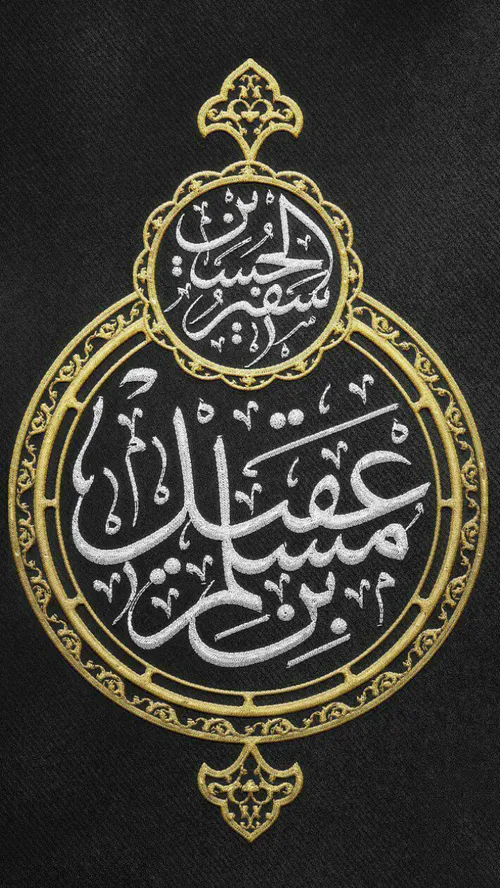 سفير الحسين
مسلم بن عقيل